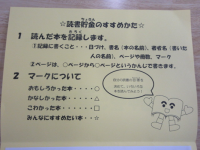 ☆読書貯金のすすめかた☆
1 読んだ本を記録します。
1記録に書くこと・・・日づけ、書名（本の名前）、著者名（書いた
人の名前）、ページや冊数、マーク
2ページは、○ページから○ページというかんじで書きます。
2 マークについて
おもしろかった本・・・・○
かなしかった本・・・・・△
こわかった本・・・・・・□
みんなにすすめたい本・・☆